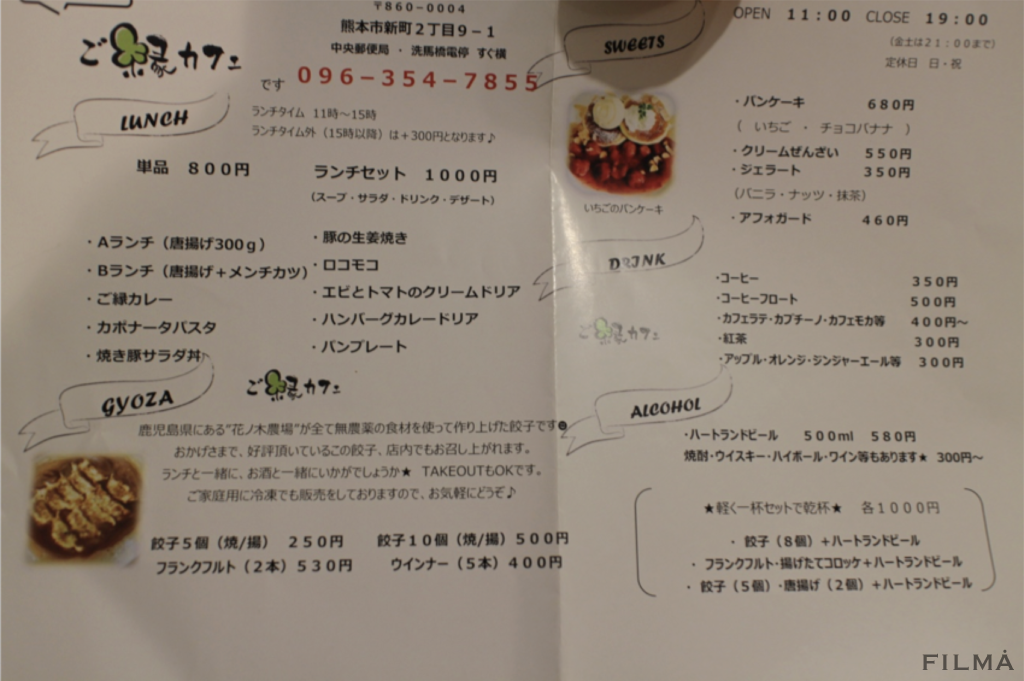 ご縁カフェ
〒860-0004
熊本市新町２丁目９−１
中央郵便局 ・ 洗馬橋電停 すぐ横
です 096−354−7855
LUNCH
ランチタイム 11時～15時
ランチタイム外（15時以降）は＋300円となります♪
単品 ８００円
ランチセット １０００円
（スープ・サラダ・ドリンク・デザート）
・Aランチ（唐揚げ300ｇ）
・Bランチ（唐揚げ＋メンチカツ）
・ご縁カレー
・カポナータパスタ
・焼き豚サラダ丼
・豚の生姜焼き
・ロコモコ
・エビとトマトのクリームドリア
・ハンバーグカレードリア
・パンプレート
GYOZA
ご縁カフェ
鹿児島県にある"花ノ木農場"が全て無農薬の食材を使って作り上げた餃子です
おかげさまで、好評頂いているこの餃子、店内でもお召し上がれます。
ランチと一緒に、お酒と一緒にいかがでしょうか★ TAKEOUTもOKです。
ご家庭用に冷凍でも販売をしておりますので、お気軽にどうぞ♪
餃子５個（焼/揚） ２５０円
餃子１０個（焼/揚）５００円
フランクフルト（２本）５３０円
ウインナー（５本）４００円
OPEN 11：00 CLOSE 19：00
（金土は２１：００まで）
定休日 日・祝
SWEETS
・パンケーキ ６８０円
（ いちご ・ チョコバナナ ）
・クリームぜんざい ５５０円
・ジェラート ３５０円
（バニラ・ナッツ・抹茶）
・アフォガード ４６０円
いちごのパンケーキ
DRINK
・コーヒー ３５０円
・コーヒーフロート ５００円
・カフェラテ・カプチーノ・カフェモカ等 ４００円～
・紅茶 ３００円
・アップル・オレンジ・ジンジャーエール等 ３００円
ご縁カフェ
ALCOHOL
・ハートランドビール ５００ml ５８０円
焼酎・ウイスキー・ハイボール・ワイン等もあります★ 300円～
★軽く一杯セットで乾杯★ 各１０００円
・ 餃子（８個）＋ハートランドビール
・ フランクフルト・揚げたてコロッケ＋ハートランドビール
・ 餃子（５個）・唐揚げ（２個）＋ハートランドビール
FILMÅ